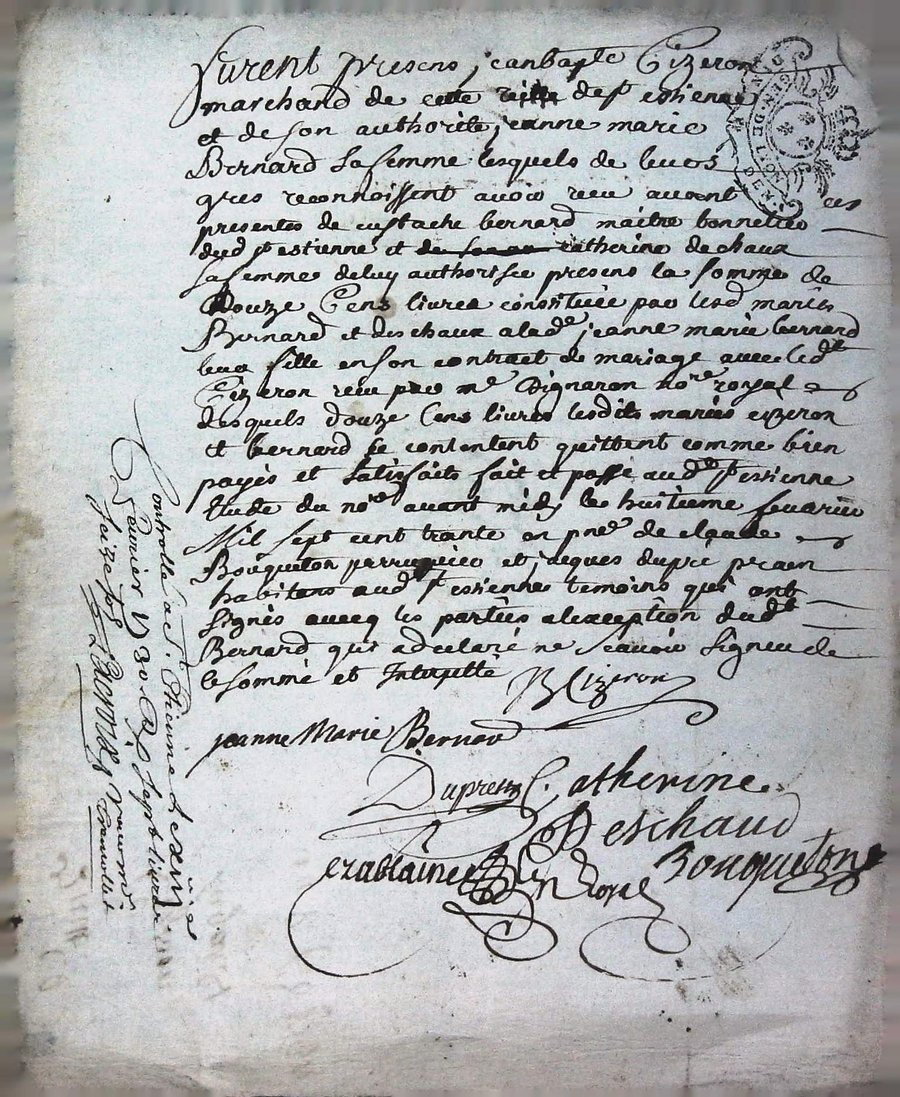 furent presens jean bapte Cizeron
marchand de cette ville de st estienne
et de son authorité jeanne marie
Bernard sa femme lesquels de leurs
gres reconnoissent avoir receu avant ces
presentes de eustache bernard maitre bonnetier
dud st estienne et catherine de chaux
sa femme de luy authorisée presens la somme de
Douze Cens livres constituée par lesd mariés
Bernard et deschaux a lade jeanne marie bernard
leur fille en son contract de mariage avec led
Cizeron receu par me Vignaron nore royal
desquels douze Cens livres lesdits mariés cizeron
et bernard se contentent quittent comme bien
payés et satisfaits fait et passé aud st estienne
étude du nore avant midy le huitieme fevrier
Mil sept cent trante en pnce de claude
Bouqueton perruquier et jacques dupré praen
habitans aud st estienne temoins qui ont
signés avecq les parties a lexception dudt
Bernard qui a declaré ne scavoir signer de
ce sommé et Interpellé
JBCizeron
jeanne Marie Bernard
Dupre Catherine
Deschaud
Bouquetone
Controllé a St Etienne le
fevrier 1730 sept livres
seize sols